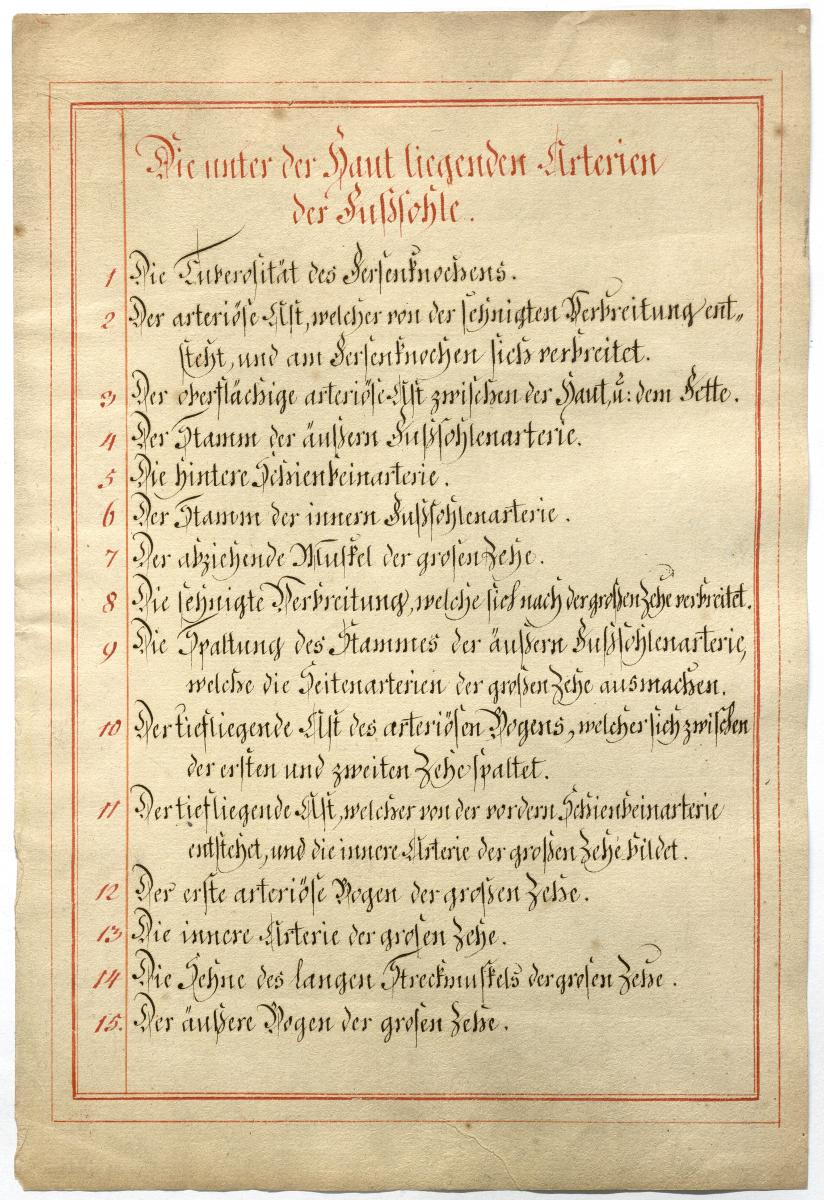 Die unter der Haut liegenden Arterien
der Fußsohle.
1 Die Tuberosität des Fersenknochens.
2 Der arteriöse Ast, welcher von der sehnigten Verbreitung ent„
steht, und am Fersenknochen sich verbreitet.
3 Der oberflächige arteriöse Ast zwischen der Haut, u: dem Fette.
4 Der Stamm der äußern Fußsohlenarterie.
5 Die hintere Schienbeinarterie.
6 Der Stamm der innern Fußsohlenarterie.
7 Der abziehende Muskel der grosen Zehe.
8 Die sehnigte Verbreitung, welche sich nach der großen Zehe verbreitet.
9 Die Spaltung des Stammes der äußern Fußsohlenarterie,
welche die Seitenarterien der großen Zehe ausmachen.
10 Der tiefliegende Ast des arteriösen Bogens, welcher sich zwischen
der ersten und zweiten Zehe spaltet.
11 Der tiefliegende Ast, welcher von der vordern Schienbeinarterie
entstehet, und die innere Arterie der großen Zehe bildet.
12 Der erste arteriöse Bogen der großen Zehe.
13 Die innere Arterie der grosen Zehe.
14 Die Sehne des langen Streckmuskels der grosen Zehe.
15. Der äußere Bogen der grosen Zehe.